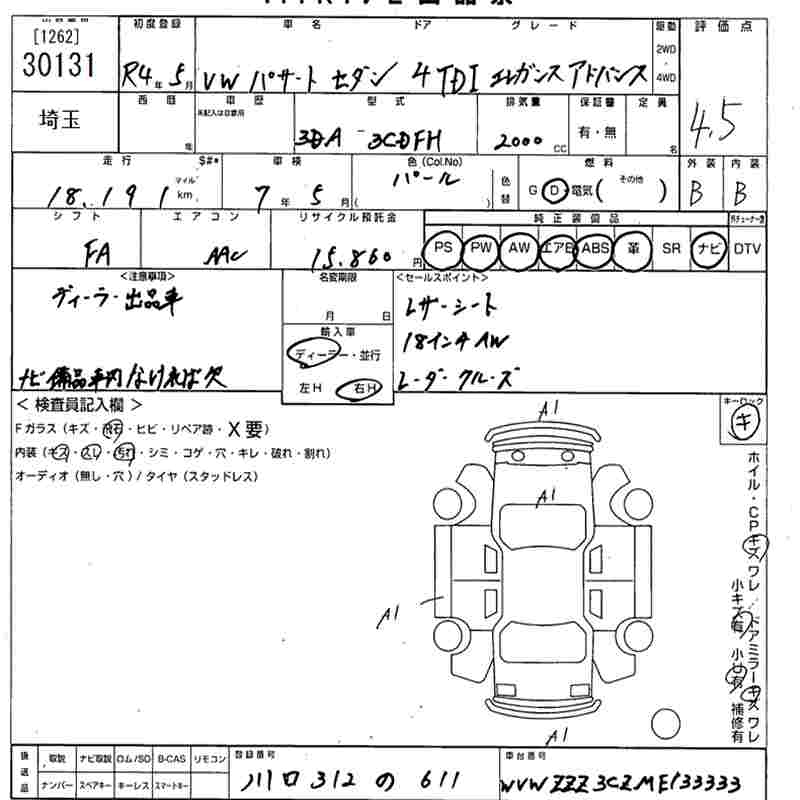 [1262]
30131
初度登録 車名 ドア グレード 駆動 評価点
R4年5月 VW パサート セダン 4 TDI エレガンス アドバンス
2WD
・
4WD
4.5
埼玉
西暦 車歴 型式 排気量 保証書 定員
未記入は自家用
年 3DA 3CDFH 2000 CC 有・無 名
走行 S#* 車検 色(Col.No) 燃料 外装 内装
18.191 マイル km 7年5月 パール 色替 G D 電気 ( その他 ) B B
シフト エアコン リサイクル預託金 純正装備品
FA AAC 15.860円 PS PW AW エアB ABS 革 SR ナビ DTV
<注意事項> 名変期限 <セールスポイント>
ディーラー出品車
月 日
レザーシート
輸入車
18インチAW
ディーラー・並行
ナビ備品車内なければ欠
左H 右H
レーダークルーズ
< 検査員記入欄 >
キーロック
キ
Fガラス(キズ・飛石・ヒビ・リペア跡・X要)
内装(キズ・スレ・汚れ・シミ・コゲ・穴・キレ・破れ・割れ)
オーディオ(無し・穴)/タイヤ(スタッドレス)
A1
A1
A1
A1
ホイル・CPキズ ワレ/ドアミラーキズ ワレ
小キズ有 小凹有 補修有
後送品 取説 ナビ取説 ロム/SD B-CAS リモコン
ナンバー スペアキー キーレス スマートキー
登録番号
川口 312 の 611
車台番号
WVWZZZ3CZME133333